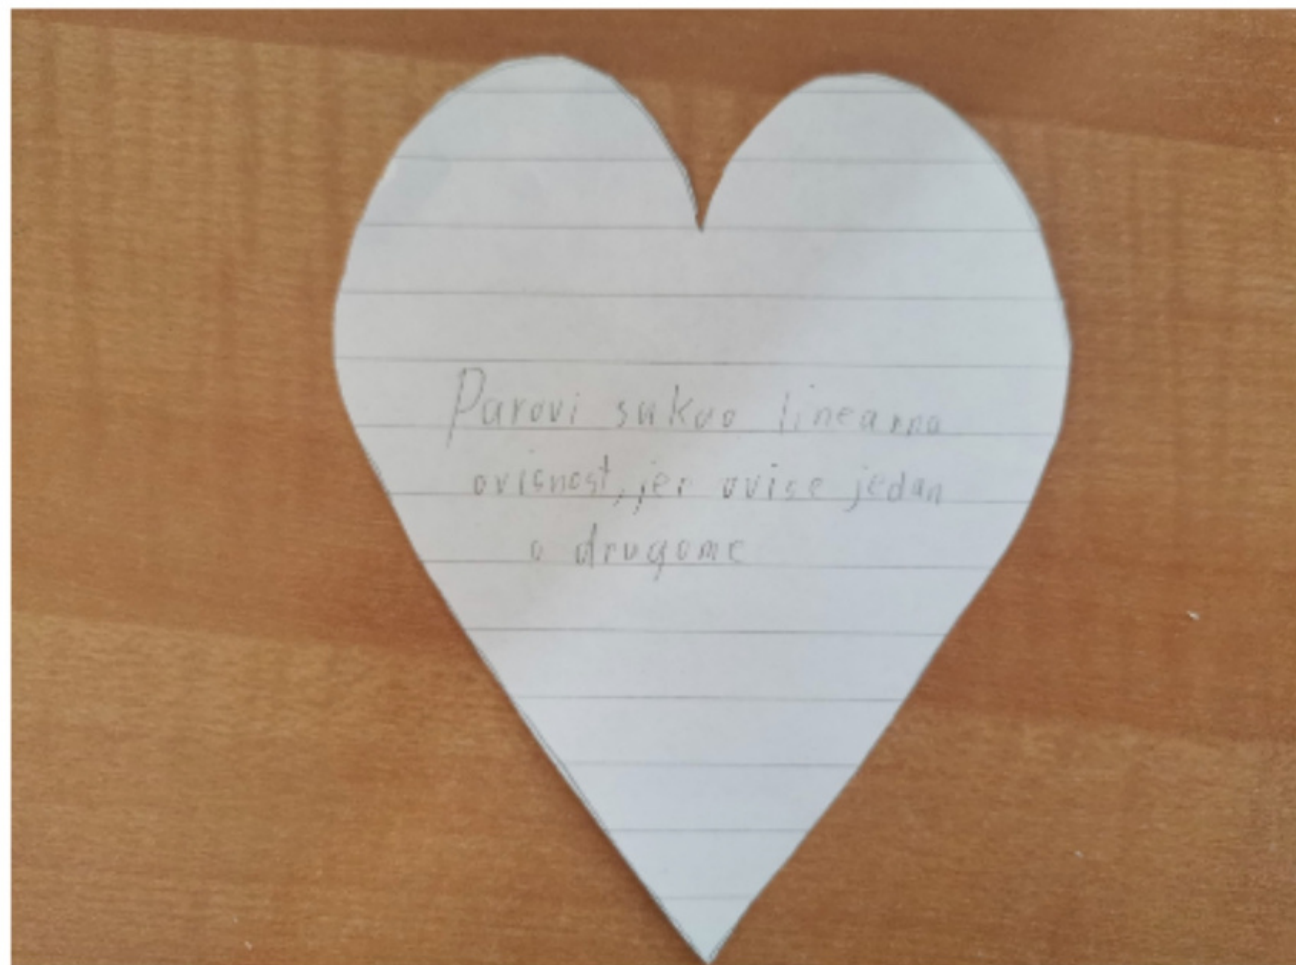 Parovi su kao linearna
ovisnost, jer ovise jedan
o drugome